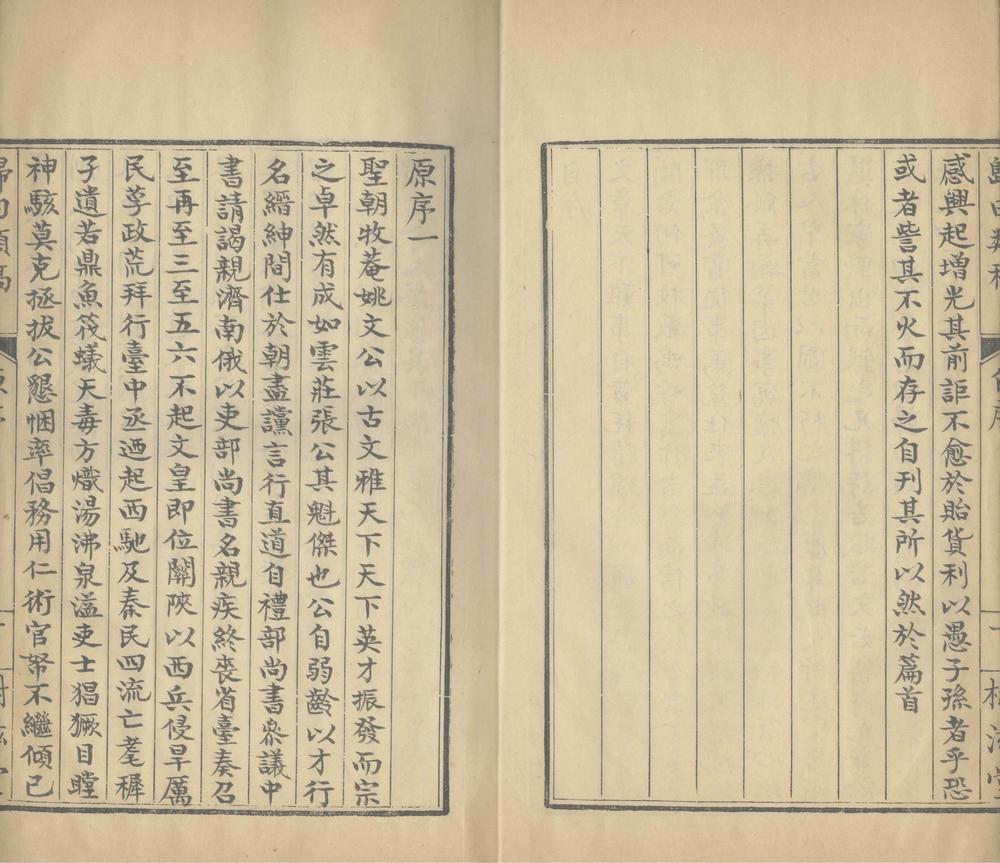 歸田類稿 自序 一
感興起增光其前詎不愈於貽貨利以愚子孫者乎恐
或者訾其不火而存之自刊其所以然於篇首
原序一
聖朝牧菴姚文公以古文雅天下天下英才振發而宗
之卓然有成如雲莊張公其魁傑也公自弱齡以才行
名縉紳間仕於朝盡讜言行直道自禮部尚書參議中
書請謁親濟南俄以吏部尚書名親疾終喪省臺奏召
至再至三至五六不起文皇即位關陝以西兵侵旱厲
民莩政荒拜行臺中丞迺起西馳及秦民四流亡耄穉
孑遺若鼎魚筏蟻天毒方熾湯沸泉溢吏士猖獗目瞠
神駭莫克拯拔公懇悃率倡務用仁術官帑不繼傾己
歸田類稿